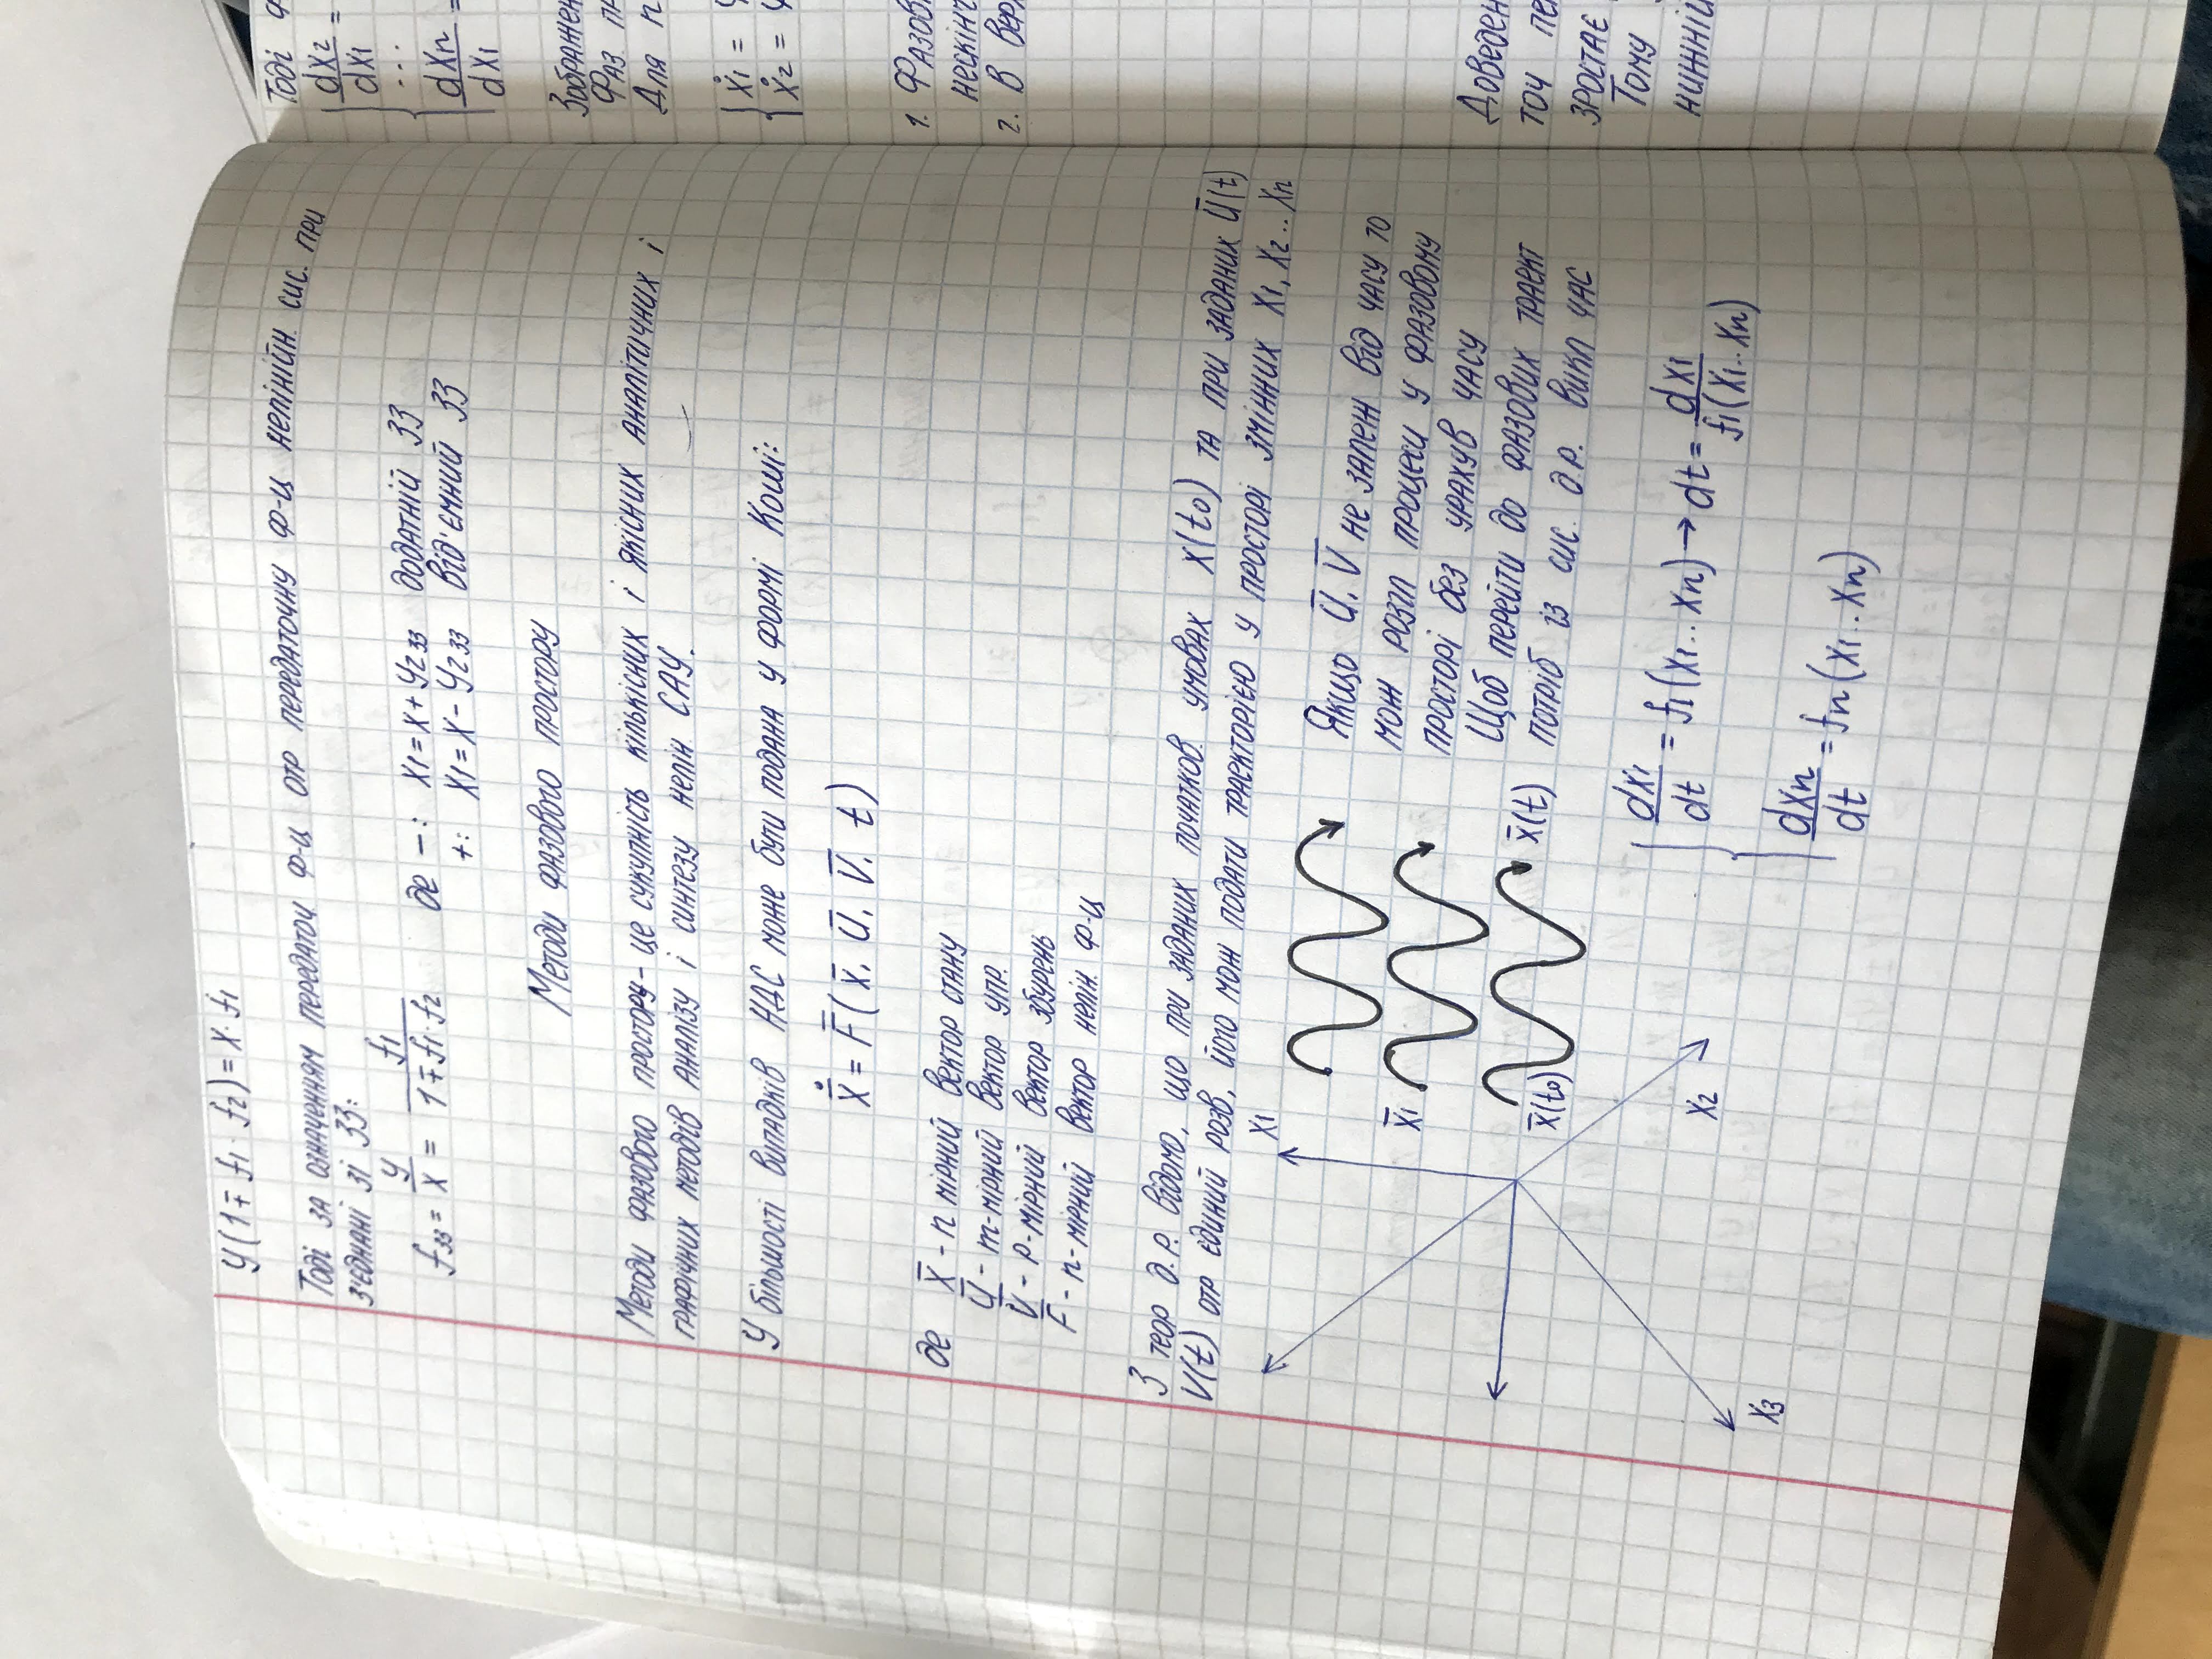 y(1∓f1·f2)=x·f1
Тоді за означенням передаточ ф-ц отр передаточну ф-ц нелінійн. сис. при
з'єднані зі ЗЗ:
fзз = y/x = f1/(1∓f1·f2) де −: x1=x+y2зз додатній ЗЗ
+: x1=x−y2зз від'ємний ЗЗ
Методи фазового простору
Методи фазового простору – це сукупність кількісних і якісних аналітичних і
графічних методів аналізу і синтезу нелін САУ.
У більшості випадків НДС може бути подана у формі Коші:
ẋ̄ = F̄(x̄, ū, v̄, t)
де x̄ – n мірний вектор стану
ū – m-мірний вектор упр.
v̄ – p-мірний вектор збурень
F̄ – n-мірний вектор нелін. ф-ц
З теор д.р. відомо, що при заданих початков. умовах x(t0) та при заданих ū(t)
v(t) отр єдиний розв, його мож подати траекторією у просторі змінних x1, x2 .. xn
x1
x̄1
x̄(t0)
x̄(t)
x2
x3
Якщо ū, v̄ не залеж від часу то
мож розгл процеси у фазовому
просторі без урахув часу
Щоб перейти до фазових траєкт
потріб із сис. д.р. викл час
dx1/dt = f1(x1..xn) → dt = dx1/f1(x1..xn)
dxn/dt = fn(x1..xn)
Тоді ф
dx2/dx1 =
...
dxn/dx1 =
Зображен
Фаз. пр
Для n
ẋ1 =
ẋ2 =
1. Фазов
нескінч
2. В верх
Доведен
точ пе
зростає
Тому
нижній